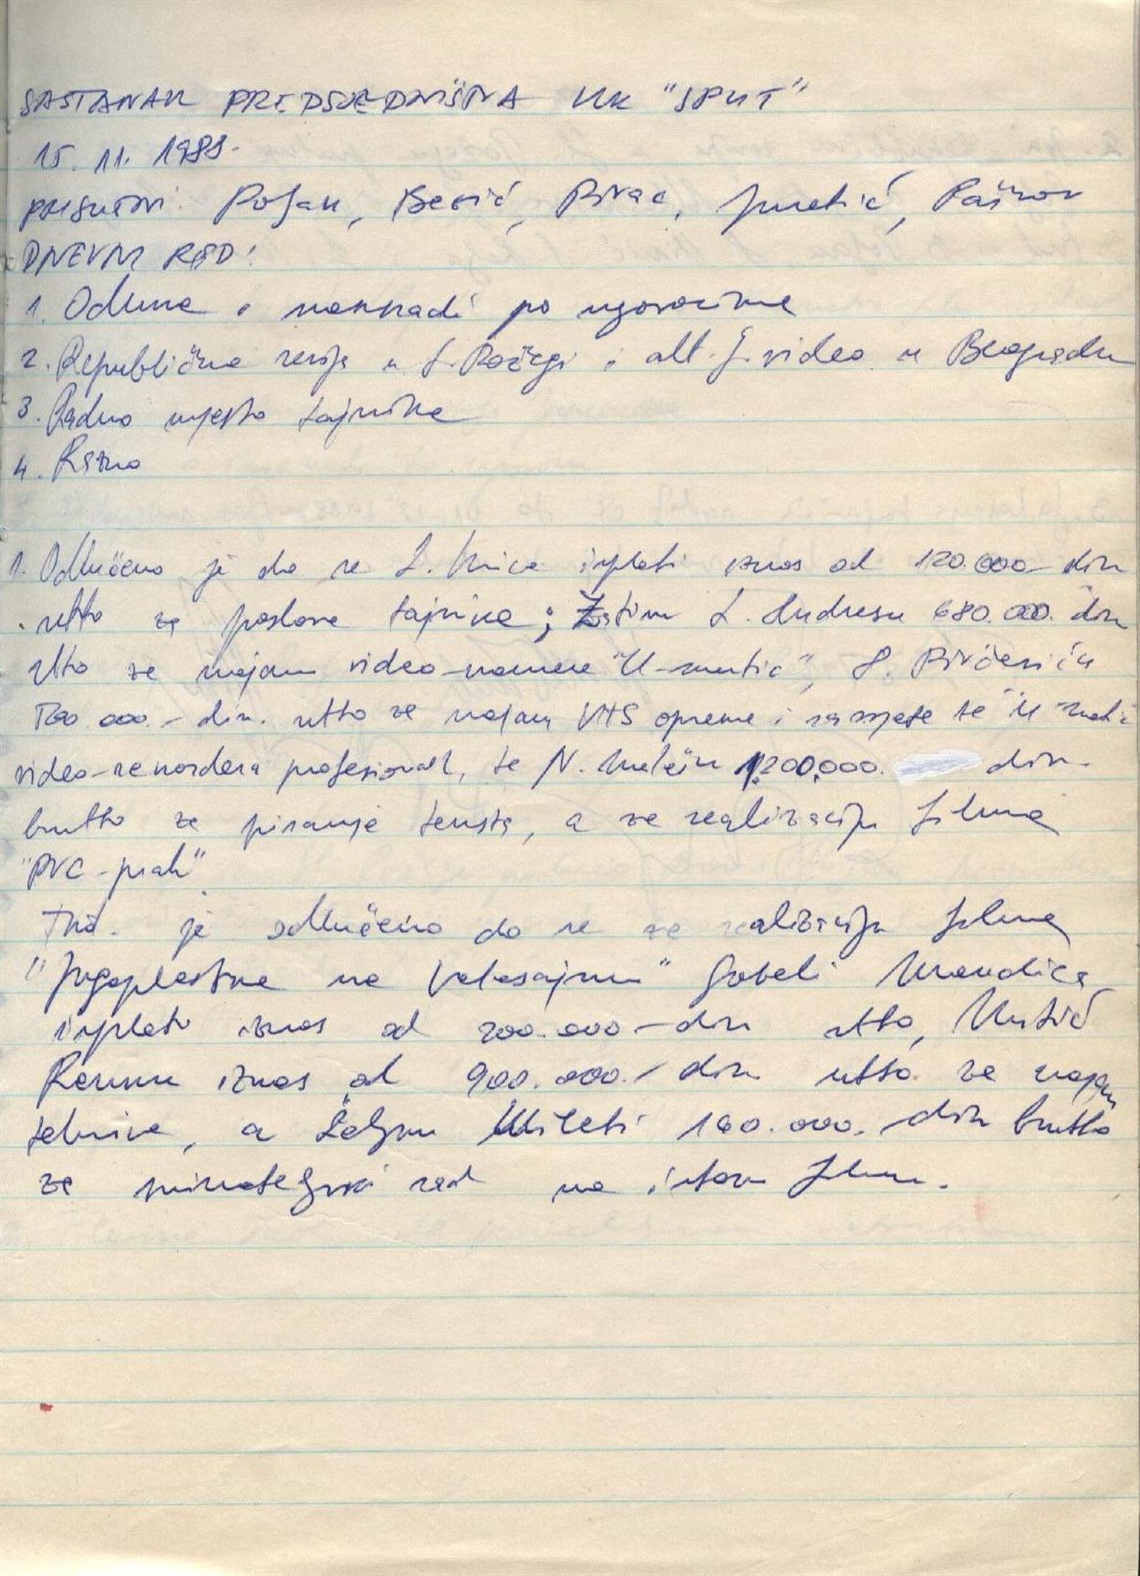 SASTANAK PREDSJEDNIŠTVA KK "SPLIT"
15. 11. 1988.
PRISUTNI: Poljak, Besić, Pivac, Juretić, Pašnov
DNEVNI RED:
1. Odluka o naknadi po ugovorima
2. Republička revija u S. Požegi i alt. f. video u Beogradu
3. Radno mjesto tajnika
4. Razno
1. Odlučeno je da se L. Knica isplati iznos od 120.000- din
netto za poslove tajnika; Zatim L. 680.000. din
netto za najam video-kamere "U-matic",
000.- din. netto za najam VHS opreme i rasvjete te "U-matic
video-rekordera profesional, te N. 1.200.000. din.
brutto za pisanje teksta, a za realizaciju filma
"PVC-prah".
Tkđ. je odlučeno da se za realizaciju filma
"Jugoplastika na Velesajmu" Gabeli
isplati iznos od 200.000- din netto,
iznos od 900.000.- din netto za najam
tehnike, a Željku Mileti 180.000.- din brutto
za snimateljski rad na istom filmu.